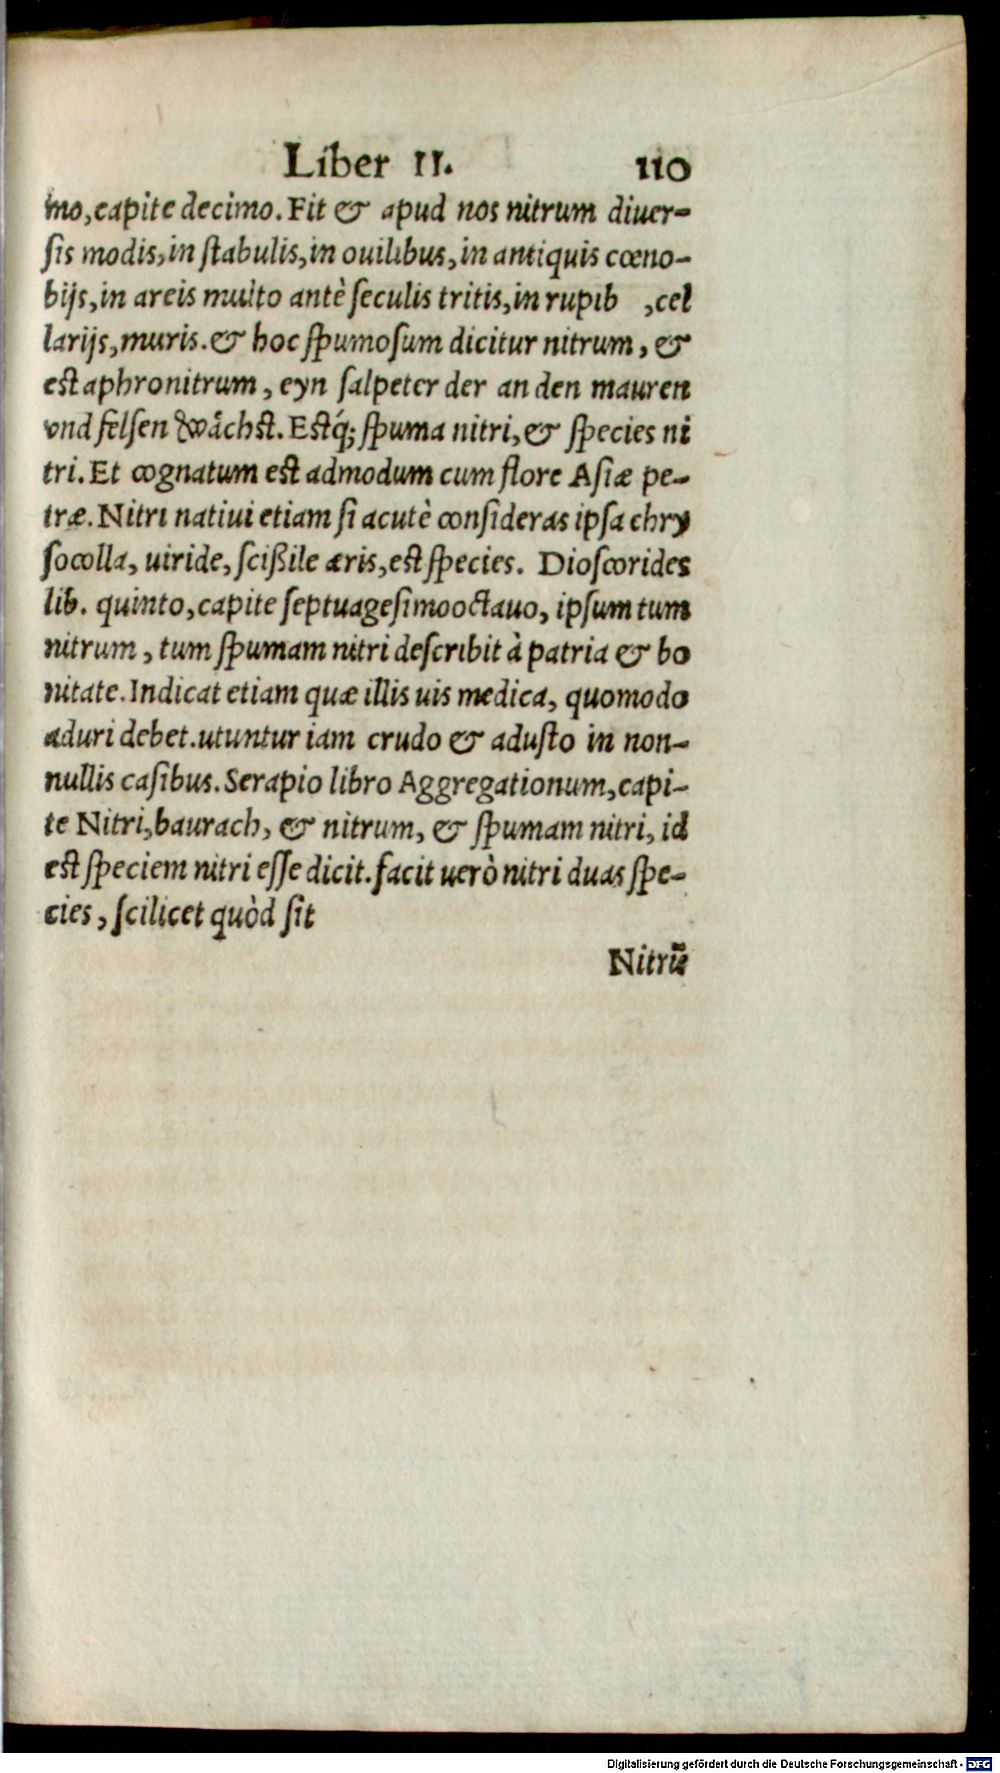 Liber II. 110
mo, capite decimo. Fit & apud nos nitrum diuer-
ſis modis, in ſtabulis, in ouilibus, in antiquis cœno-
bijs, in areis multo antè ſeculis tritis, in rupib , cel
larijs, muris. & hoc ſpumoſum dicitur nitrum, &
eſt aphronitrum, eyn ſalpeter der an den mauren
vnd felſen wåchſt. Eſtq́; ſpuma nitri, & ſpecies ni
tri. Et cognatum eſt admodum cum flore Aſiæ pe-
træ. Nitri natiui etiam ſi acutè conſideras ipſa chry
ſocolla, uiride, ſcißile æris, eſt ſpecies. Dioſcorides
lib. quinto, capite ſeptuageſimooctauo, ipſum tum
nitrum, tum ſpumam nitri deſcribit à patria & bo
nitate. Indicat etiam quæ illis uis medica, quomodo
aduri debet. utuntur iam crudo & aduſto in non-
nullis caſibus. Serapio libro Aggregationum, capi-
te Nitri, baurach, & nitrum, & ſpumam nitri, id
eſt ſpeciem nitri eſſe dicit. facit uerò nitri duas ſpe-
cies, ſcilicet quòd ſit
Nitrũ
Digitalisierung gefördert durch die Deutsche Forschungsgemeinschaft - DFG